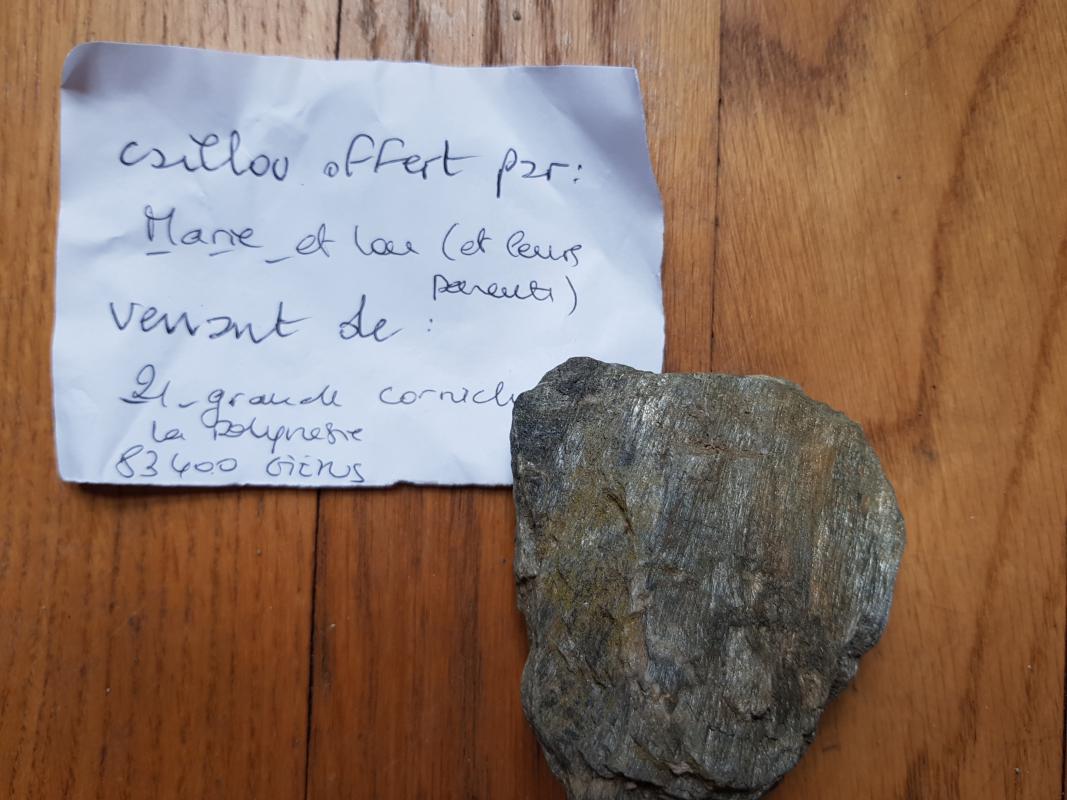 caillou offert par:
Marie et Lou (et leurs
parents)
venant de :
21 grande cornich
la Polynesie
83400 GIENS